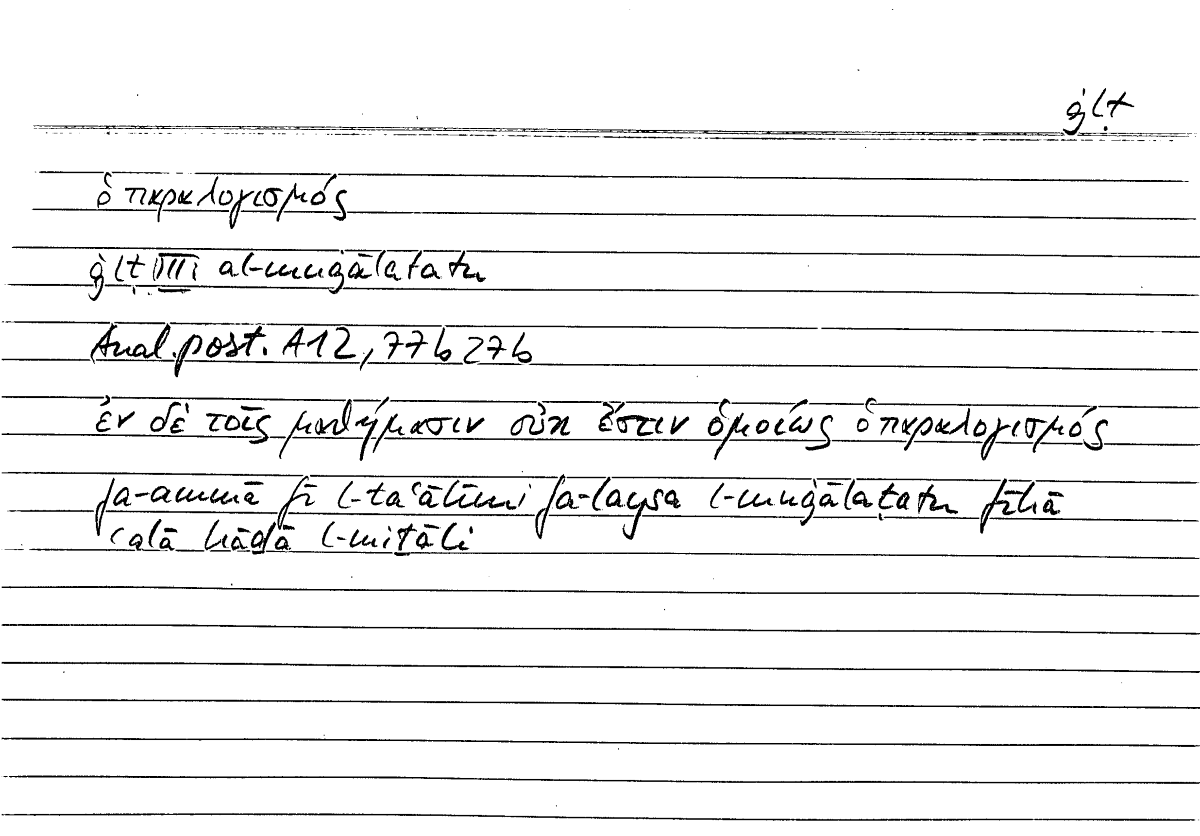 ġlṭ
ὁ παραλογισμός
ġlṭ III al-muġālaṭatu
Anal. post. A12, 77b 27b
ἐν δὲ τοῖς μαθήμασιν οὐκ ἔστιν ὁμοίως ὁ παραλογισμός
fa-ammā fī l-taʿālīmi fa-laysa l-muġālaṭatu fīhā
ʿalā hāḏā l-miṯāli